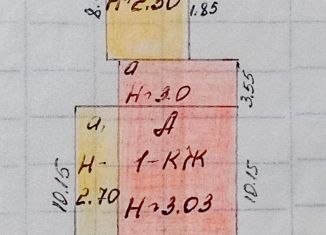 8. H-2.50 1.85
а
H-3.0 3.55
а, А
H- 1-КЖ
2.70
10.15 10.15
H-3.03